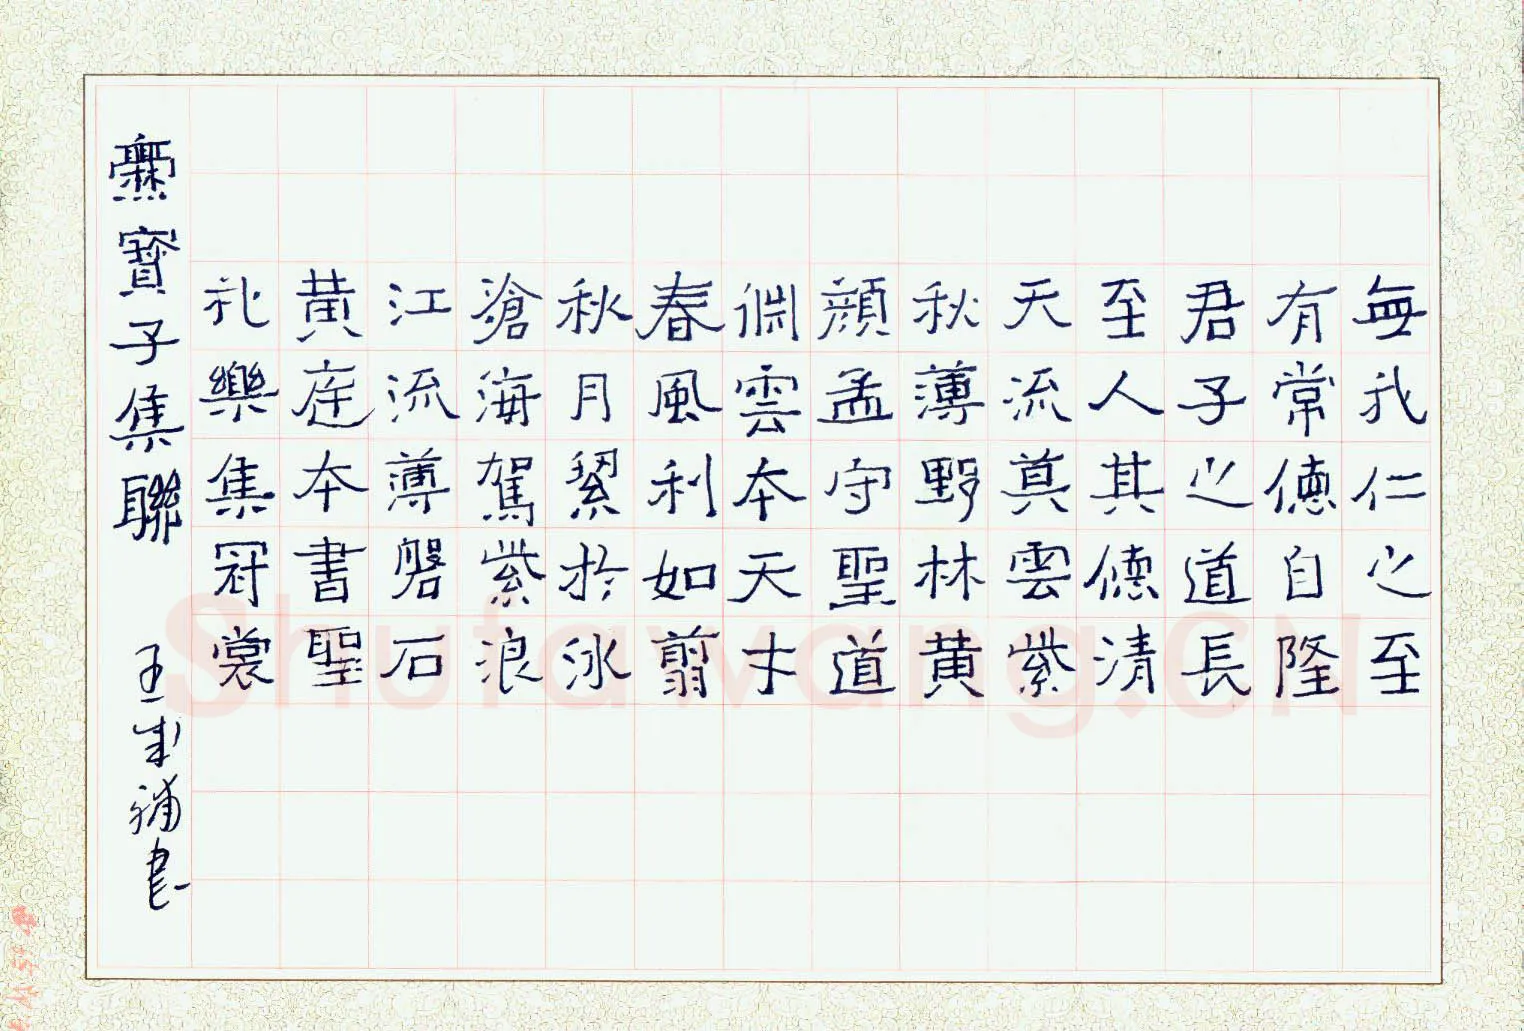 無我仁之至
有常德自隆
君子之道長
至人其德清
天流真雲紫
秋薄野林黄
顏孟守聖道
淵雲本天才
春風利如剪
秋月絜於冰
滄海駕紫浪
江流薄磐石
黃庭本書聖
礼樂集冠裳
爨寶子集聯
王成補書
Shufawang.CN